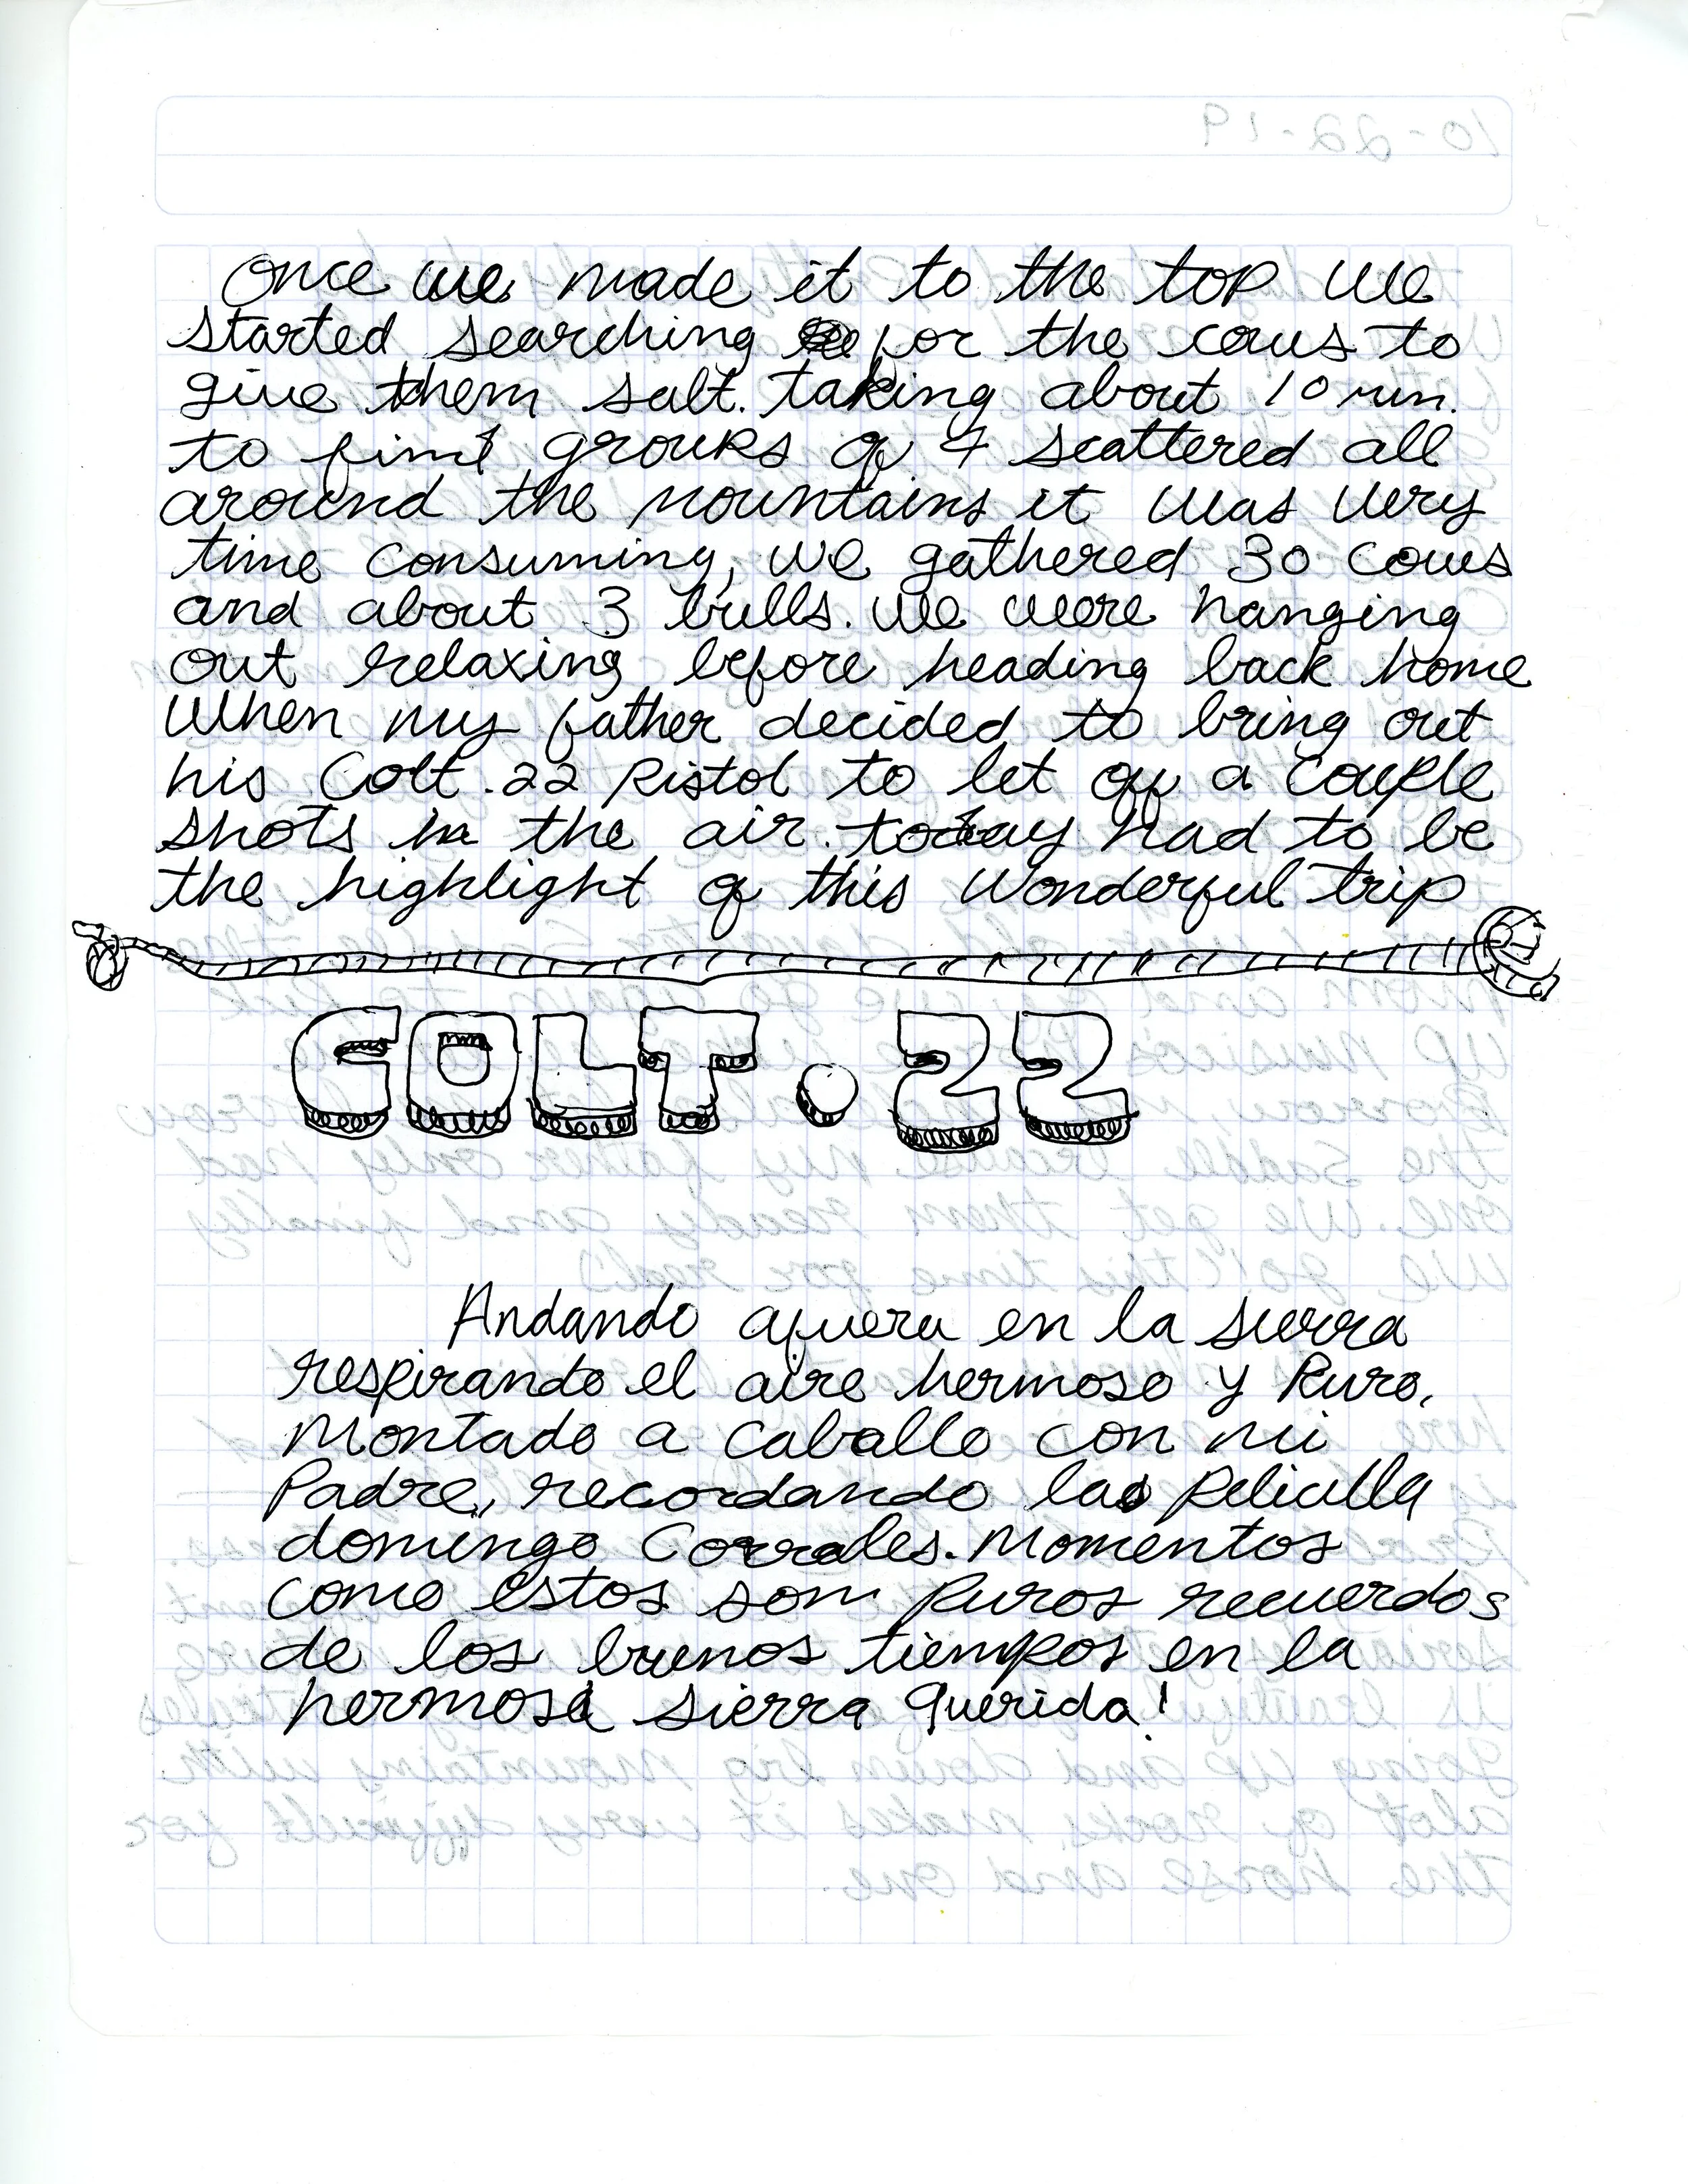 Once we made it to the top we
started searching for the cows to
give them salt. taking about 10 min.
to find groups of 4 scattered all
around the mountains it was very
time consuming, we gathered 30 cows
and about 3 bulls. we were hanging
out relaxing before heading back home
when my father decided to bring out
his Colt .22 Pistol to let off a couple
shots in the air. today had to be
the highlight of this wonderful trip
COLT.22
Andando afuera en la sierra
respirando el aire hermoso y Puro,
Montado a Caballo con mi
Padre, recordando las Peliculla
domingo Corrales. Momentos
como estos som Puros recuerdos
de los buenos tiempos en la
hermosa sierra querida!